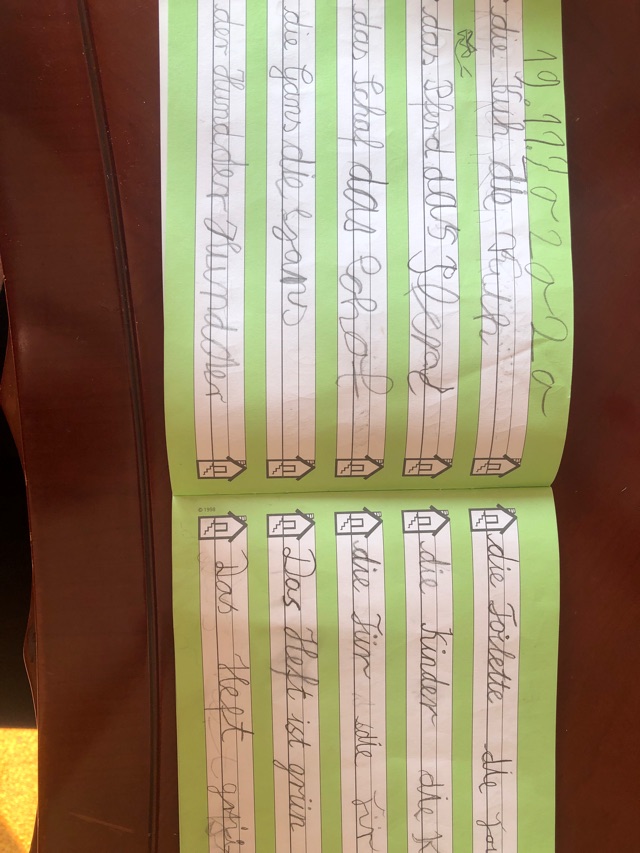 19.11.2020
die Kuh die Kuh
das Pferd das Pferd
das Schaf das Schaf
die Gans die Gans
der Hund der Hund der
die Toilette die
die Kinder die K
die Tür die Tür
Das Heft ist grün
Das Heft